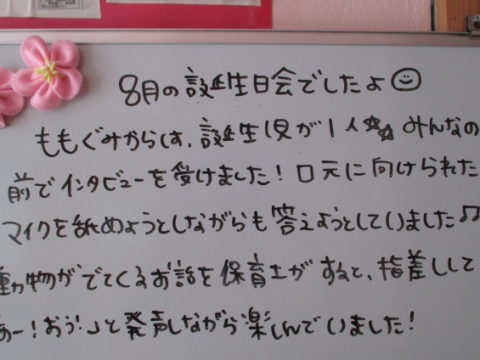 8月の誕生日会でしたよ☺
ももぐみからは、誕生児が1人☆☆ みんなの
前でインタビューを受けました！口元に向けられた
マイクを舐めようとしながらも答えようとしていました♫
動物がでてくるお話を保育士がすると、指差しして
あー！おう！」と発声しながら楽しんでいました！